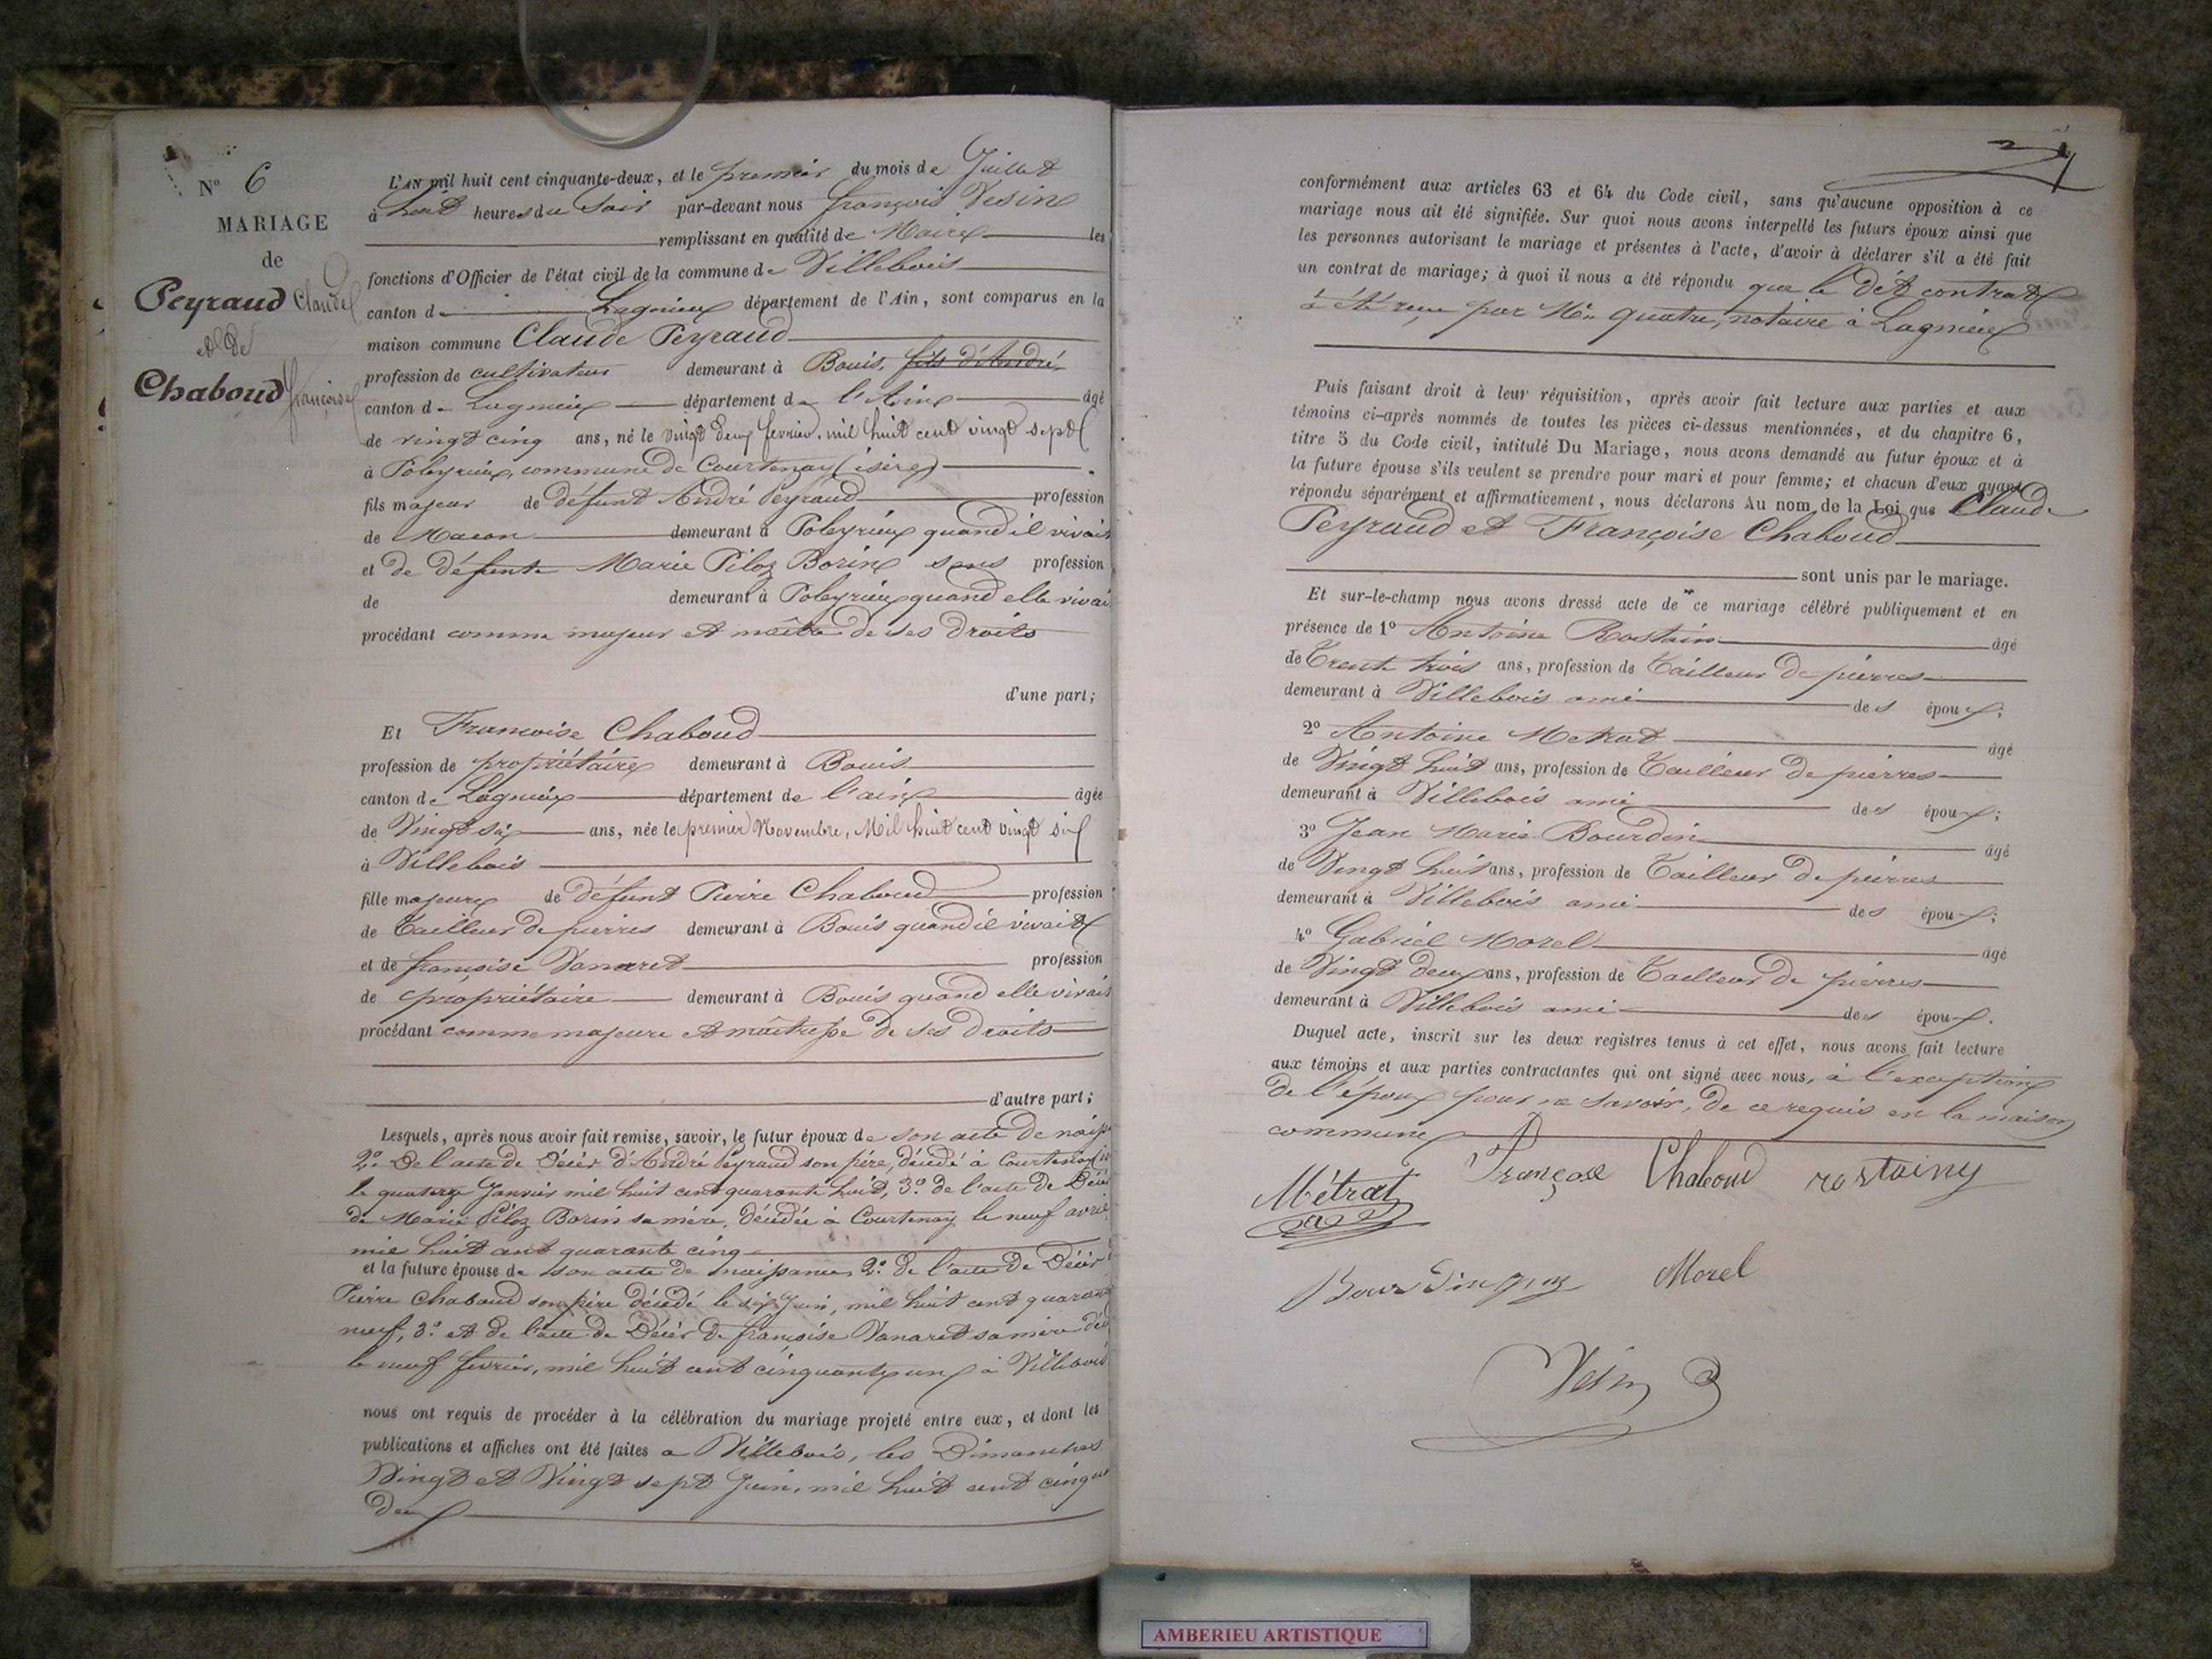 N° 6
MARIAGE
de
Peyraud Claude
et de
Chaboud françoise
L'AN mil huit cent cinquante-deux, et le premier du mois de Juillet
à huit heures du Soir par-devant nous françois Vesin
remplissant en qualité de Maire les
fonctions d'Officier de l'état civil de la commune de Villebois
canton de Lagnieu département de l'Ain, sont comparus en la
maison commune Claude Peyraud
profession de cultivateur demeurant à Bouis, fils d'André
canton de Lagnieu département de l'Ain âgé
de vingt cinq ans, né le vingt deux fevrier, mil huit cent vingt sept
à Poleyrieu, commune de Courtenay (isère)
fils majeur de défunt André Peyraud profession
de Macon demeurant à Poleyrieu quand il vivait
et de défunte Marie Piloz Borin sans profession
de demeurant à Poleyrieu quand elle vivait
procédant comme majeur et maître de ses droits
d'une part;
Et Francoise Chaboud
profession de propriétaire demeurant à Bouis
canton de Lagnieu département de l'ain âgée
de Vingt six ans, née le premier Novembre, Mil huit cent vingt six
à Villebois
fille majeure de défunt Pierre Chaboud profession
de Tailleur de pierres demeurant à Bouis quand il vivait
et de françoise Vanaret profession
de propriétaire demeurant à Bouis quand elle vivait
procédant comme majeure et maîtresse de ses droits
d'autre part;
Lesquels, après nous avoir fait remise, savoir, le futur époux de son acte de naiss
2° De l'acte de Décès d'André Peyraud son père, décédé à Courtenay
le quatorze Janvier mil huit cent quarante huit, 3° de l'acte de Décès
de Marie Piloz Borin sa mère, décédée à Courtenay le neuf avril
mil huit cent quarante cinq
et la future épouse de son acte de naissance, 2° de l'acte de Décès
Pierre Chaboud son père décédé le six Juin, mil huit cent quarante
neuf, 3° et de l'acte de Décès de françoise Vanaret sa mère déc
le neuf fevrier, mil huit cent cinquante un à Villebois
nous ont requis de procéder à la célébration du mariage projeté entre eux, et dont les
publications et affiches ont été faites à Villebois, les Dimanches
Vingt et Vingt sept Juin, mil huit cent cinqu
deux
conformément aux articles 63 et 64 du Code civil, sans qu'aucune opposition à ce
mariage nous ait été signifiée. Sur quoi nous avons interpellé les futurs époux ainsi que
les personnes autorisant le mariage et présentes à l'acte, d'avoir à déclarer s'il a été fait
un contrat de mariage; à quoi il nous a été répondu que le dit contrat
à été reçu par Me quatre, notaire à Lagnieu
Puis faisant droit à leur réquisition, après avoir fait lecture aux parties et aux
témoins ci-après nommés de toutes les pièces ci-dessus mentionnées, et du chapitre 6,
titre 5 du Code civil, intitulé Du Mariage, nous avons demandé au futur époux et à
la future épouse s'ils veulent se prendre pour mari et pour femme; et chacun d'eux ayant
répondu séparément et affirmativement, nous déclarons Au nom de la Loi que Claude
Peyraud et Françoise Chaboud
sont unis par le mariage.
Et sur-le-champ nous avons dressé acte de ce mariage célébré publiquement et en
présence de 1° Antoine Rostain âgé
de Trente trois ans, profession de Tailleur de pierres
demeurant à Villebois ami des époux;
2° Antoine Metrat âgé
de Vingt huit ans, profession de Tailleur de pierres
demeurant à Villebois ami des époux;
3° Jean Marie Bourdin âgé
de Vingt huit ans, profession de Tailleur de pierres
demeurant à Villebois ami des époux;
4° Gabriel Morel âgé
de Vingt deux ans, profession de Tailleur de pierres
demeurant à Villebois ami des époux.
Duquel acte, inscrit sur les deux registres tenus à cet effet, nous avons fait lecture
aux témoins et aux parties contractantes qui ont signé avec nous, à l'exception
de l'époux pour ne savoir, de ce requis en la maison
commune
Métrat Françose Chaboud rostaing
Morel
Vesin
AMBERIEU ARTISTIQUE